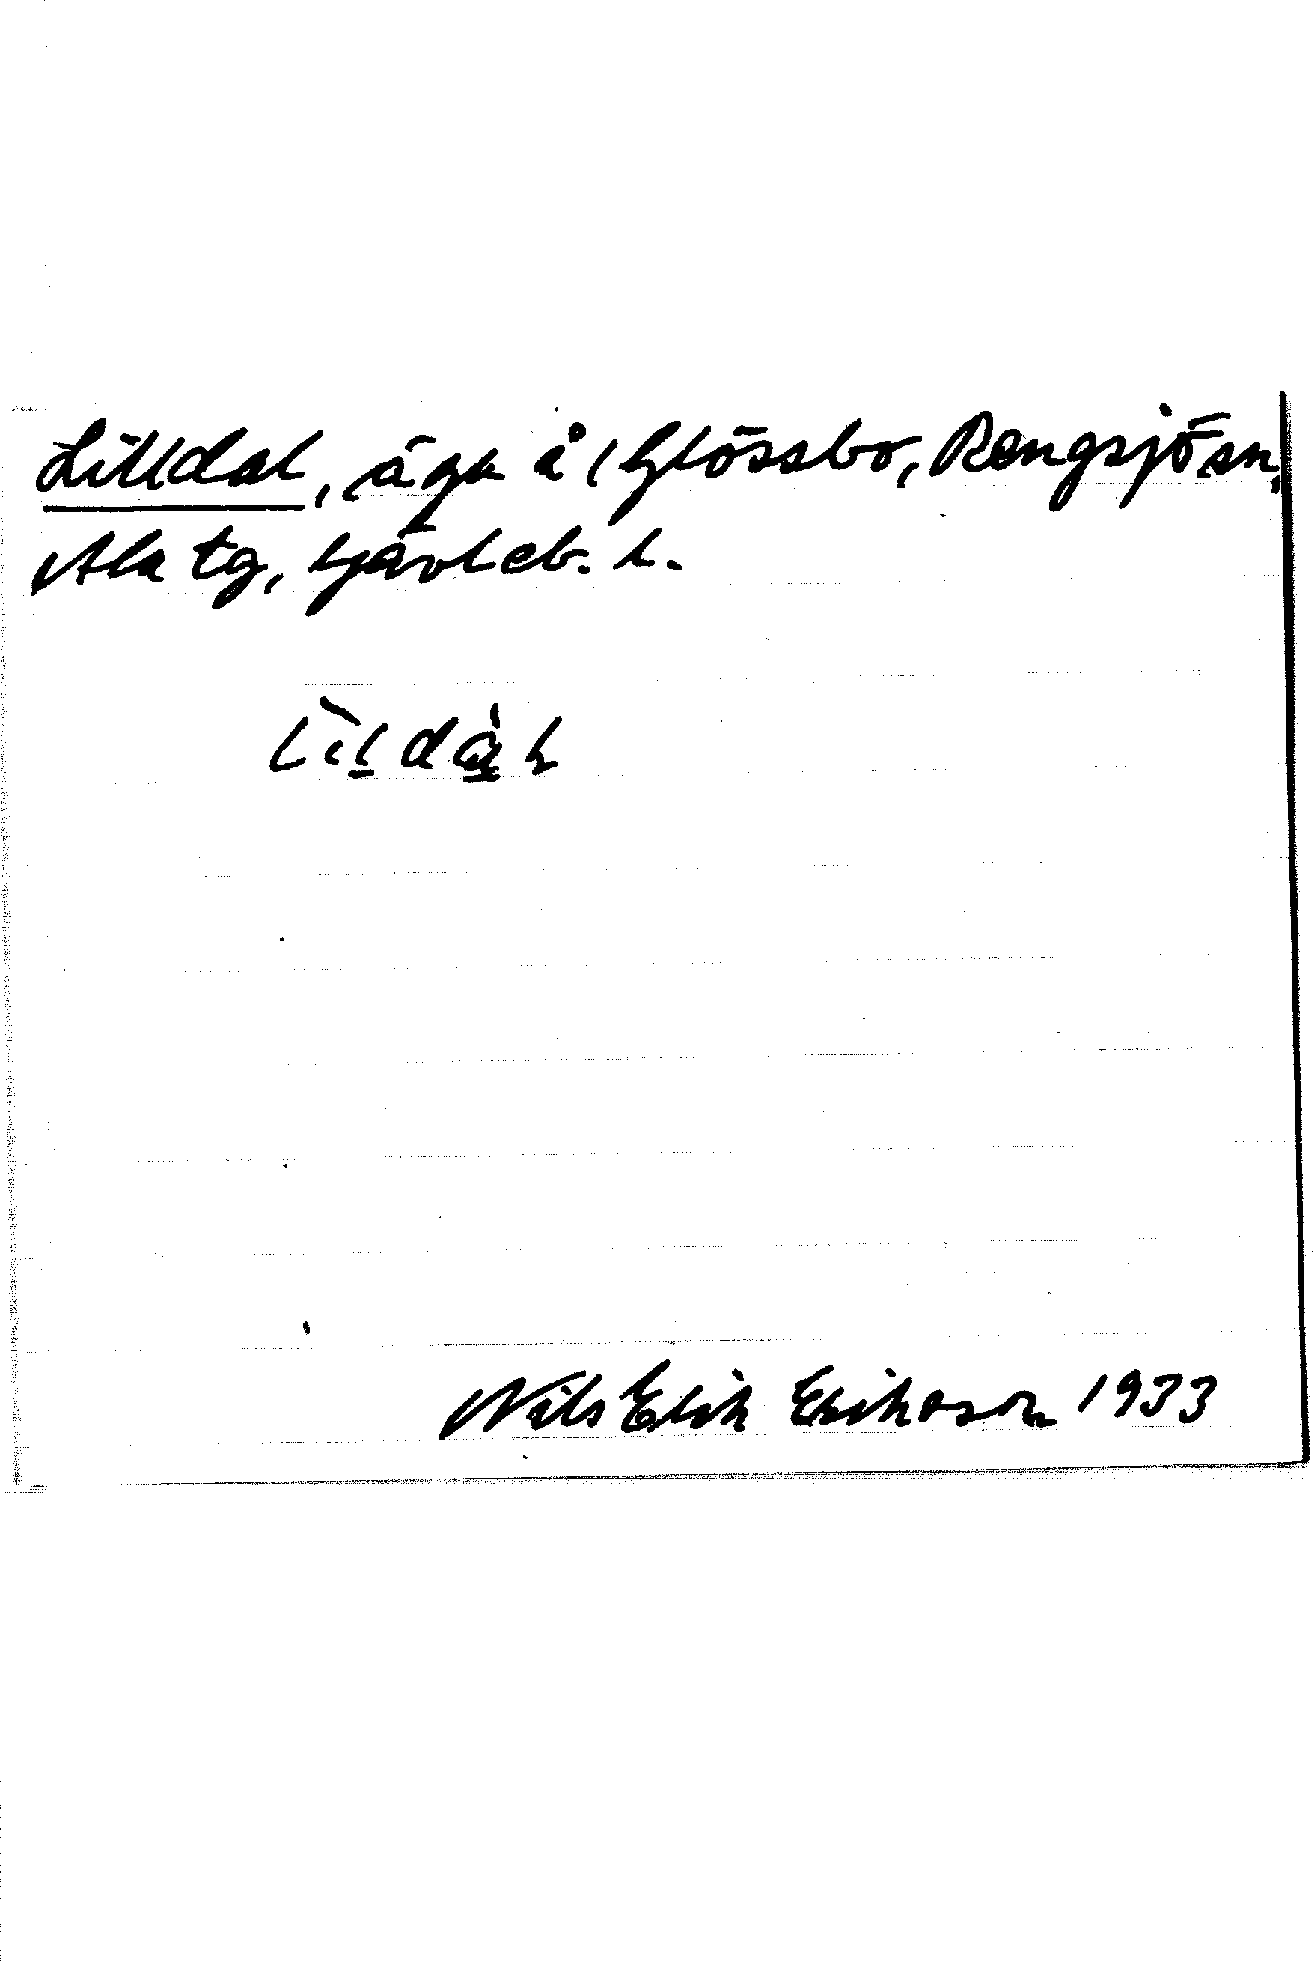 Lilldal, äga å Glössbo, Rengsjö sn,
Ala tg, Gävleb. l.
lìldàl
Nils Erik Erikson 1933